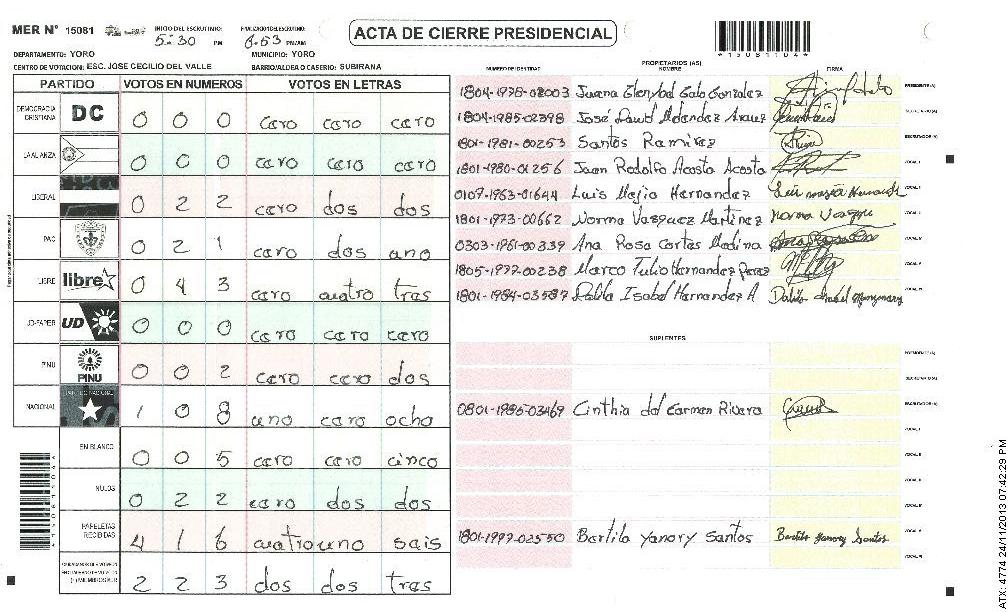 MER N° 15081 INICIO DEL ESCRUTINIO: 5:30 PM FINALIZACION DEL ESCRUTINIO: 6:53 PM/AM ACTA DE CIERRE PRESIDENCIAL *15081104*
DEPARTAMENTO: YORO MUNICIPIO: YORO
CENTRO DE VOTACION: ESC. JOSE CECILIO DEL VALLE BARRIO/ALDEA O CASERIO: SUBIRANA
PARTIDO VOTOS EN NUMEROS VOTOS EN LETRAS
DEMOCRACIA CRISTIANA DC 0 0 0 cero cero cero
LA ALIANZA 0 0 0 cero cero cero
LIBERAL 0 2 2 cero dos dos
PAC 0 2 1 cero dos uno
LIBRE libre 0 4 3 cero cuatro tres
UD-FAPER UD 0 0 0 cero cero cero
PINU PINU 0 0 2 cero cero dos
NACIONAL PARTIDO NACIONAL 1 0 8 uno cero ocho
EN BLANCO 0 0 5 cero cero cinco
NULOS 0 2 2 cero dos dos
PAPELETAS RECIBIDAS 4 1 6 cuatro uno seis
2 2 3 dos dos tres
PROPIETARIOS (AS)
NUMERO DE IDENTIDAD NOMBRE FIRMA
1804-1978-02003 Juana Elenybel Gato Gonzalez PRESIDENTE (A)
1804-1985-02398 José David Melendez SECRETARIO (A)
1801-1981-00253 Santos Ramirez ESCRUTADOR (A)
1801-1980-01256 Juan Rodolfo Acosta Acosta VOCAL I
0107-1963-01644 Luis Mejia Hernandez Luis mejia Hernandez
1801-1973-00662 Norma Vasquez Martinez Norma Vasquez
0303-1961-00339 Ana Rosa Cortes Medina
1805-1977-00238 Marco Tulio Hernandez Perez
1801-1984-03587 Dalila Isabel Hernandez A
SUPLENTES
PRESIDENTE (A)
SECRETARIO (A)
0801-1985-03469 Cinthia del Carmen Rivera ESCRUTADOR (A)
VOCAL I
1801-1997-02550 Bertila Yanory Santos Bertila Yanory Santos
ATX: 4774 24/11/2013 07:42:29 PM